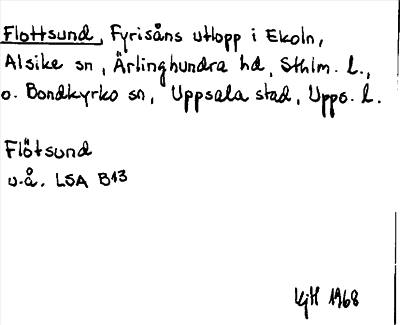 Flottsund, Fyrisåns utlopp i Ekoln,
Alsike sn, Ärlinghundra hd, Sthlm. l.,
o. Bondkyrko sn, Uppsala stad, Upps. l.
Flötsund
u.å. LSA B13
KjH 1968